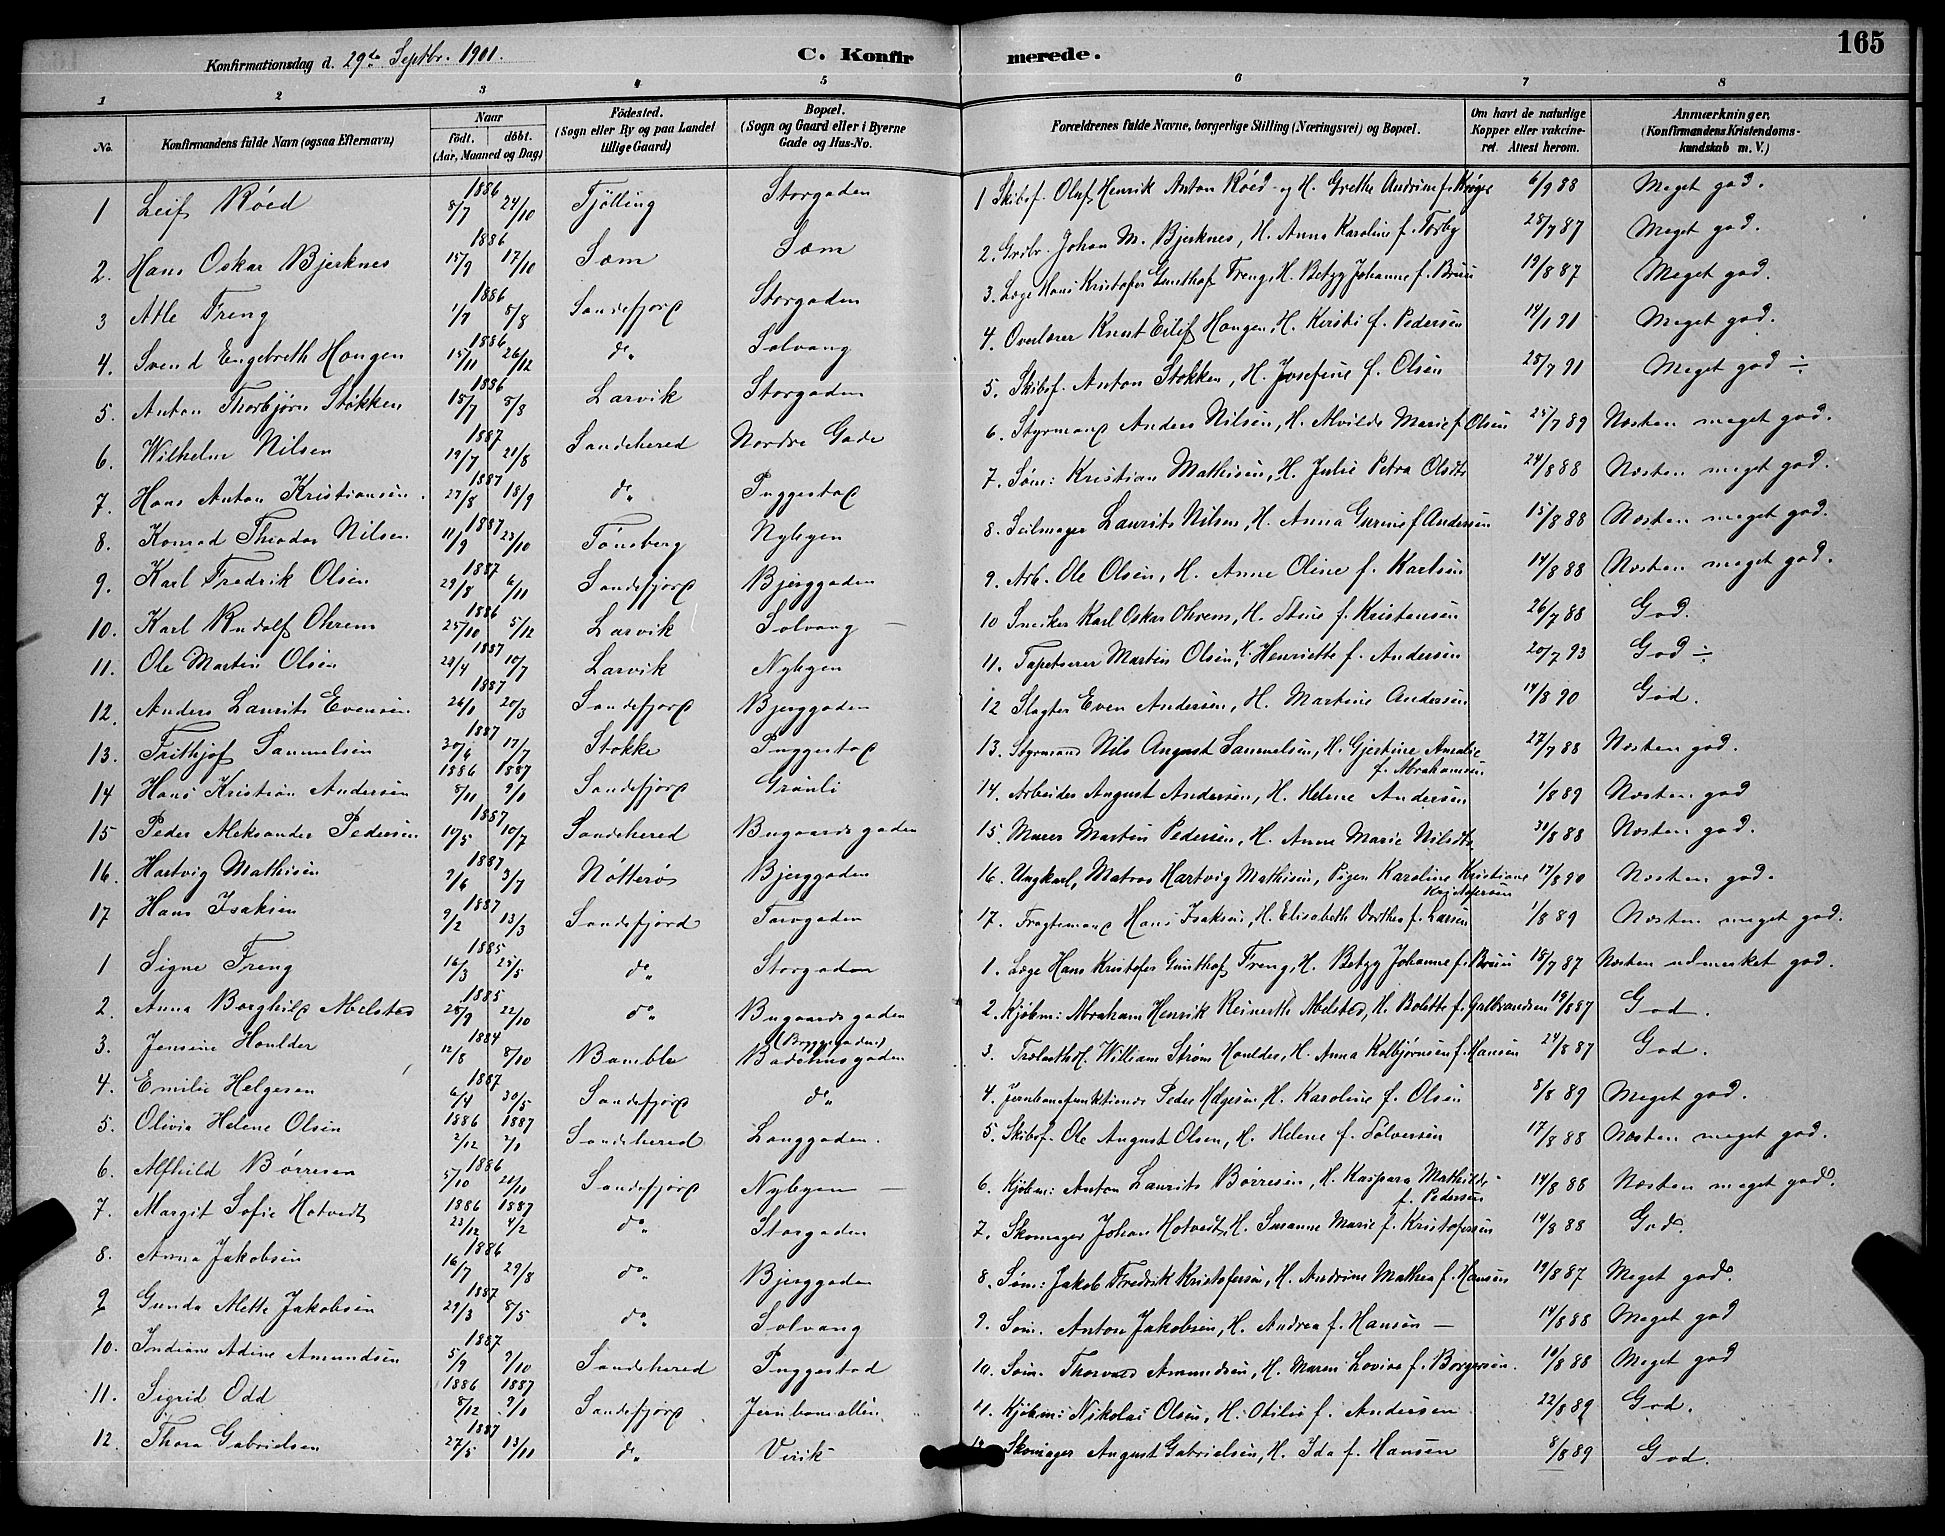 Konfirmationsdag d. 29de Septbr. 1901.
C. Konfirmerede.
165
1 2 3 4 5 6 7 8
No.
Konfirmandens fulde Navn (ogsaa Efternavn)
Naar
født. døbt.
(Aar, Maaned og Dag)
Fødested.
(Sogn eller By og paa Landet
tillige Gaard)
Bopæl.
(Sogn og Gaard eller i Byerne
Gade og Hus-No.
Forældrenes fulde Navne, borgerlige Stilling (Næringsvei) og Bopæl.
Om havt de naturlige
Kopper eller vakcine-
ret. Attest herom.
Anmærkninger.
(Konfirmandens Kristendoms-
kundskab m. V.)
1 Leif Röed 1886 8/7 24/10 Tjölling Storgaden 1 Skibsf. Oluf Henrik Anton Röed og H. Grethe Andrine f. Krøger 6/9 88 Meget god.
2. Hans Oskar Bjerknes 1886 15/9 17/10 Sæm Sæm 2. Grdbr. Johan M. Bjerknes, H. Anna Karoline f. Torby 28/7 87 Meget god.
3 Atle Freng 1886 1/7 8/8 Sandefjord Storgaden 3. Læge Hans Kristofer Gunthof Freng, H. Betzy Johanne f. Bruu 19/8 87 Meget god.
4. Svend Engebreth Hougen 1886 15/11 26/12 do. Solvang 4. Overlærer Knut Eilef Hougen, H. Kirsti f. Pedersen 14/1 91 Meget god.
5. Anton Thorbjørn Støkken 1886 18/7 8/8 Larvik Storgaden 5. Skibsf. Anton Stokken, H. Josefine f. Olsen 25/7 91 Meget god ÷
6. Wilhelm Nilsen 1887 19/7 21/8 Sandeherred Nordre Gade 6. Styrmand Anders Nilsen, H. Alvilde Marie f. Olsen 25/7 89 Næsten meget god.
7. Hans Anton Kristiansen. 1887 27/8 18/9 do. Puggestad 7. Søm: Kristian Mathisen, H. Julie Petra Olsdtr 24/8 88 Næsten meget god.
8. Konrad Theodor Nilsen 1887 11/9 23/10 Tönsberg Nybyen 8. Seilmager Laurits Nilsen, H. Anna Gurine f. Andersen 15/8 88 Næsten meget god.
9. Karl Fredrik Olsen 1887 29/8 6/11 Sandefjord Bjerggaden 9. Arb. Ole Olsen, H. Anne Oline f. Karlsen 14/8 88 Næsten meget god.
10. Karl Rudolf Ohrem 1886 25/10 5/12 Larvik Solvang 10 Snedker Karl Oskar Ohrem, H. Stine f. Kristensen 26/7 88 God.
11. Ole Martin Olsen 1887 24/4 10/7 Larvik Nybyen 11. Tapetserer Martin Olsen, H. Henriette f. Andersen 20/7 93 God ÷
12. Anders Laurits Evensen 1887 26/1 20/3 Sandefjord Bjerggaden 12 Slagter Even Andersen, H. Martine Andersen 14/8 90 God.
13. Frithjof Samuelsen 1887 30/4 17/7 Stokke Puggestad 13. Styrmand Nils August Sammelsen, H. Gjertine Amalie f. Abrahamsen 27/7 88 Næsten god.
14 Hans Kristian Andersen 1886 8/11 1887 9/1 Sandefjord Grönli 14. Arbeider August Andersen, H. Helene Andersen 1/8 89 Næsten god
15 Peder Aleksander Pedersen 1887 19/5 10/7 Sandeherred Bugaards gaden 15. Murer Martin Pedersen, H. Anne Marie Nilsdtr 31/8 88 Næsten god.
16. Hartvig Mathisen 1887 2/6 3/7 Nötterö Bjerggaden 16. Ungkarl, Matros Hartvig Mathisen, Pigen Karoline Kristiane Kristofersen 17/8 90 Næsten god.
17 Hans Isaksen 1887 9/2 13/3 Sandefjord Torvgaden 17. Fragtemand Hans Isaksen, H. Elisabeth Dorthea f. Larsen 1/8 89 Næsten meget god.
1 Signe Freng 1885 16/3 25/5 do. Storgaden 1. Læge Hans Kristofer Gunthof Freng, H. Betzy Johanne f. Bruu 18/7 87 Næsten udmerket god.
2. Anna Borghild Melsted 1885 28/9 22/10 do. Bugaards gaden 2. Kjøbm: Abraham Henrik Reinerth Melsted, H. Bolette f. Gulbrandsen 19/8 87 God.
3. Jensine Houlder 1884 12/8 8/10 Bamble (Bryggegaden) Badehusgaden 3. Trælasth. William Strøm Houlder, H. Anna Kolbjørnsen f. Hansen 24/8 87 God.
4. Emilie Helgesen 1887 6/4 30/5 Sandefjord do. 4. Jernbanefunktionær Peder Helgesen, H. Karoline f. Olsen 8/8 89 Meget god.
5. Olivia Helene Olsen 1886 2/12 1887 2/1 Sandeherred Langgaden. 5. Skibsf. Ole August Olsen, H. Helene f. Tolversen 17/8 88 Næsten meget god.
6. Alfhild Børresen 1886 5/10 21/11 Sandefjord Nybyen 6. Kjøbm: Anton Laurits Børresen, H. Kaspara Mathilde f. Pedersen 14/8 88 Næsten meget god.
7. Margit Sofie Hotvedt 1886 23/12 1887 4/2 do. Storgaden 7. Skomager Johan Hotvedt, H. Susanne Marie f. Kristofersen 14/8 88 God.
8. Anna Jakobsen 1886 16/7 29/8 do. Bjerggaden 8. Søm: Jakob Fredrik Kristofersen, H. Andrine Mathea f. Hansen 19/8 87 Meget god.
9 Gunda Alette Jakobsen 1887 29/3 8/5 do. Solvang 9. Søm. Anton Jakobsen, H. Andrea f. Hansen 14/8 88 Meget god
10. Indiane Adine Amundsen 1887 5/9 9/10 Sandeherred Puggestad 10. Søm. Thorvald Amundsen, H. Maren Lovise f. Borgersen. 10/8 88 Meget god
11. Sigrid Odd 1886 8/12 1887 9/1 Sandefjord Jernbanealleen 11. Kjøbm: Nikolai Olsen, H. Otilie f. Andersen 22/8 89 God.
12. Thora Gabrielsen 1887 27/5 13/11 do. Virik 12. Skomager August Gabrielsen, H. Ida f. Hansen 8/8 89 God.